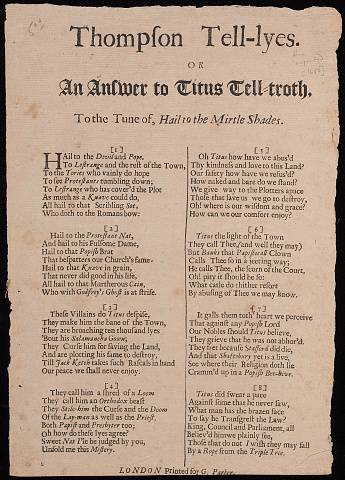 Thompſon Tell-lyes.
OR
An Anſwer to Titus Tell-troth.
To the Tune of, Hail to the Mirtle Shades.
[1]
HAil to the Devil and Pope,
To Leſtrange and the reſt of the Town,
To the Tories who vainly do hope
To ſee Proteſtants tumbling down;
To Leſtrange who has cover'd the Plot
As much as a Knave could do,
All hail to that Scribling Sot,
Who doth to the Romans bow:
[2]
Hail to the Proteſtant Nat,
And hail to his Fulſome Dame,
Hail to that Popiſh Brat
That beſpatters our Church's fame
Hail to that Knave in grain,
That never did good in his life,
All hail to that Martherous Cain,
Who with Godfrey's Ghoſt is at ſtrife.
[3]
Theſe Villains do Titus deſpiſe,
They make him the bane of the Town,
They are broaching ten thouſand lyes
'Bout his Salamancha Gown;
They Curſe him for ſaving the Land,
And are plotting his fame to deſtroy,
Till Jack Ketch takes ſuch Raſcals in hand
Our peace we ſhall never enjoy.
[4]
They call him a ſhred of a Loom
They call him an Orthodox beaſt
They Stile him the Curſe and the Doom
Of the Lay-man as well as the Prieſt,
Both Papiſt and Presbyter too;
Oh how do theſe lyes agree?
Sweet Nat I'le be judged by you,
Unfold me this Miſtery.
[5]
Oh Titus how have we abus'd
Thy kindneſs and love to this Land?
Our ſafety how have we refus'd?
How naked and bare do we ſtand?
We give way to the Plotters apace
Thoſe that ſave us we go to deſtroy,
Oh! where is our wiſdom and grace?
How can we our comfort enjoy?
[6]
Titus the light of the Town
They call Thee, (and well they may)
But Banks that Papiſtical Clown
Calls Thee ſo in a jeering way;
He calls Thee, the ſcorn of the Court,
Oh! pity it ſhould be ſo:
What cauſe do thither reſort
By abuſing of Thee we may know.
[7]
It galls them to th' heart we perceive
That againſt any Popiſh Lord
Our Nobles ſhould Titus believe,
They grieve that he was not abhor'd:
They fret becauſe Stafford did die,
And that Shaftsbury yet is alive,
See where their Religion doth lie
Cramm'd up in a Popiſh Bee-hive.
[8]
Titus did ſwear a pace
Againſt ſome that he never ſaw,
What man has the brazen face
To ſay he Tranſgreſt the Law?
King, Council and Parliament, all
Believ'd him we plainly ſee,
Thoſe that do not I wiſh they may fall
By a Rope from the Triple Tree.
LONDON Printed for G. Parker.